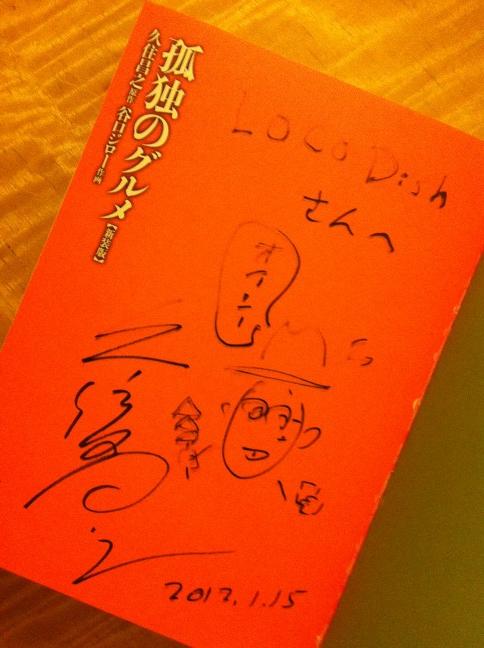 孤独のグルメ【新装版】
久住昌之 原作 谷口ジロー 作画
LOCO Dish
さんへ
オイシー
久住昌之
2012.1.15